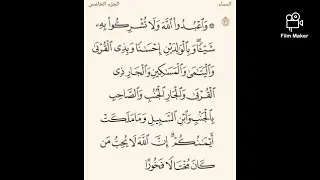 النساء الجزء الخامس
۞ وَٱعْبُدُوا۟ ٱللَّهَ وَلَا تُشْرِكُوا۟ بِهِۦ
شَيْـًٔا ۖ وَبِٱلْوَٰلِدَيْنِ إِحْسَـٰنًا وَبِذِى ٱلْقُرْبَىٰ
وَٱلْيَتَـٰمَىٰ وَٱلْمَسَـٰكِينِ وَٱلْجَارِ ذِى
ٱلْقُرْبَىٰ وَٱلْجَارِ ٱلْجُنُبِ وَٱلصَّاحِبِ
بِٱلْجَنۢبِ وَٱبْنِ ٱلسَّبِيلِ وَمَا مَلَكَتْ
أَيْمَـٰنُكُمْ ۗ إِنَّ ٱللَّهَ لَا يُحِبُّ مَن
كَانَ مُخْتَالًا فَخُورًا
Film Maker